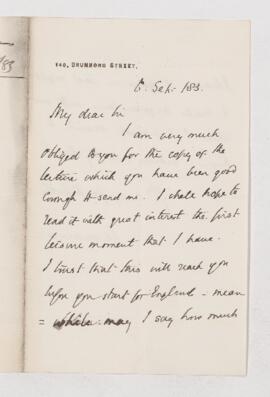 /83
140, DRUMMOND STREET.
6. Sept. /83.
My dear Sir
I am very much
obliged to you for the copy of the
lecture which you have been good
enough to send me. I shall hope to
read it with great interest the first
leisure moment that I have.
I trust that this will reach you
before you start for England - mean
= while may I say how much